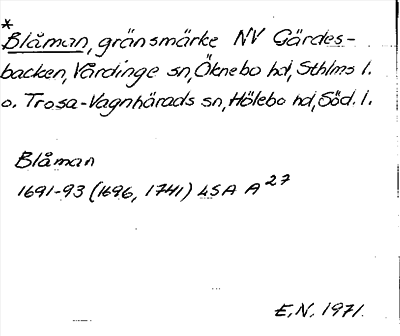 *
Blåman, gränsmärke NV Gärdes-
backen, Vårdinge sn, Öknebo hd, Sthlms l.
o. Trosa-Vagnhärads sn, Hölebo hd, Söd. l.
Blåman
1691-93 (1696, 1741) LSA A 27
E.N. 1971.